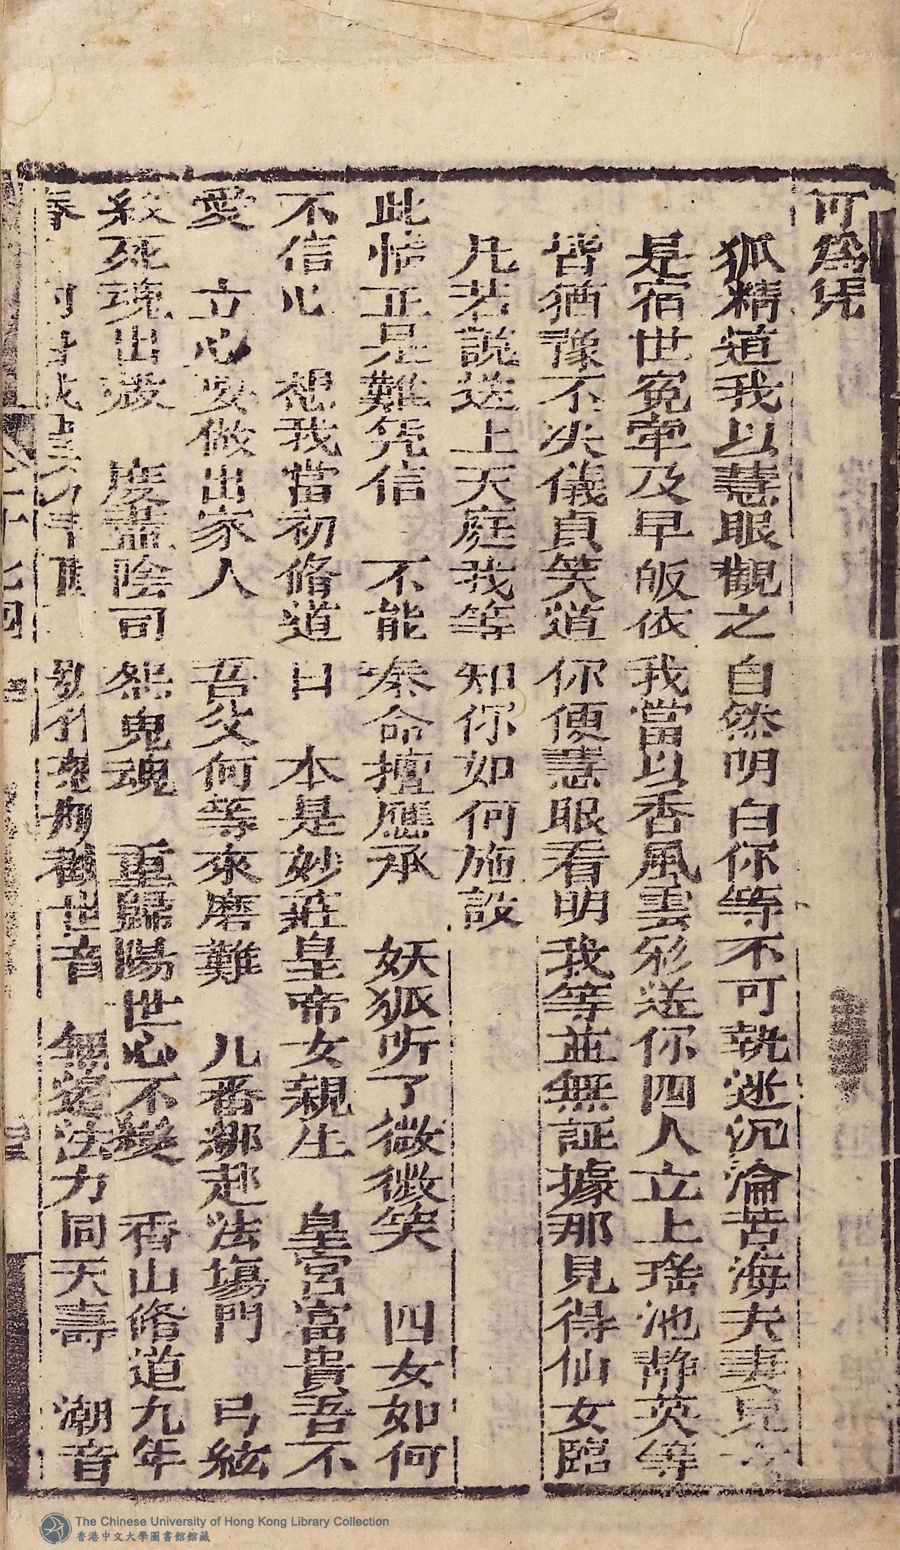 可為凭
狐精道我以慧眼觀之自然明白你等不可執迷沉淪苦海夫妻兒女
是宿世冤牽及早皈依我當以香風雲彩送你四人立上瑤池靜英等
皆猶豫不决儀貞笑道你便慧眼看明我等並無証據那見得仙女臨
凡若說送上天庭我等知你如何施設
此情正是難凭信 不能奏命擅應承 妖狐听了微微笑 四女如何
不信心 想我當初脩道日 本是妙莊皇帝女親生 皇宮富貴吾不
愛 立心要做出家人 吾父何等來磨難 几番綁赴法塲門 弓絃
絞死魂出殼 度盡陰司怨鬼魂 重歸陽世心不變 香山脩道九年
觀世音 無邊法力同天壽 潮音
The Chinese University of Hong Kong Library Collection
香港中文大學圖書館館藏